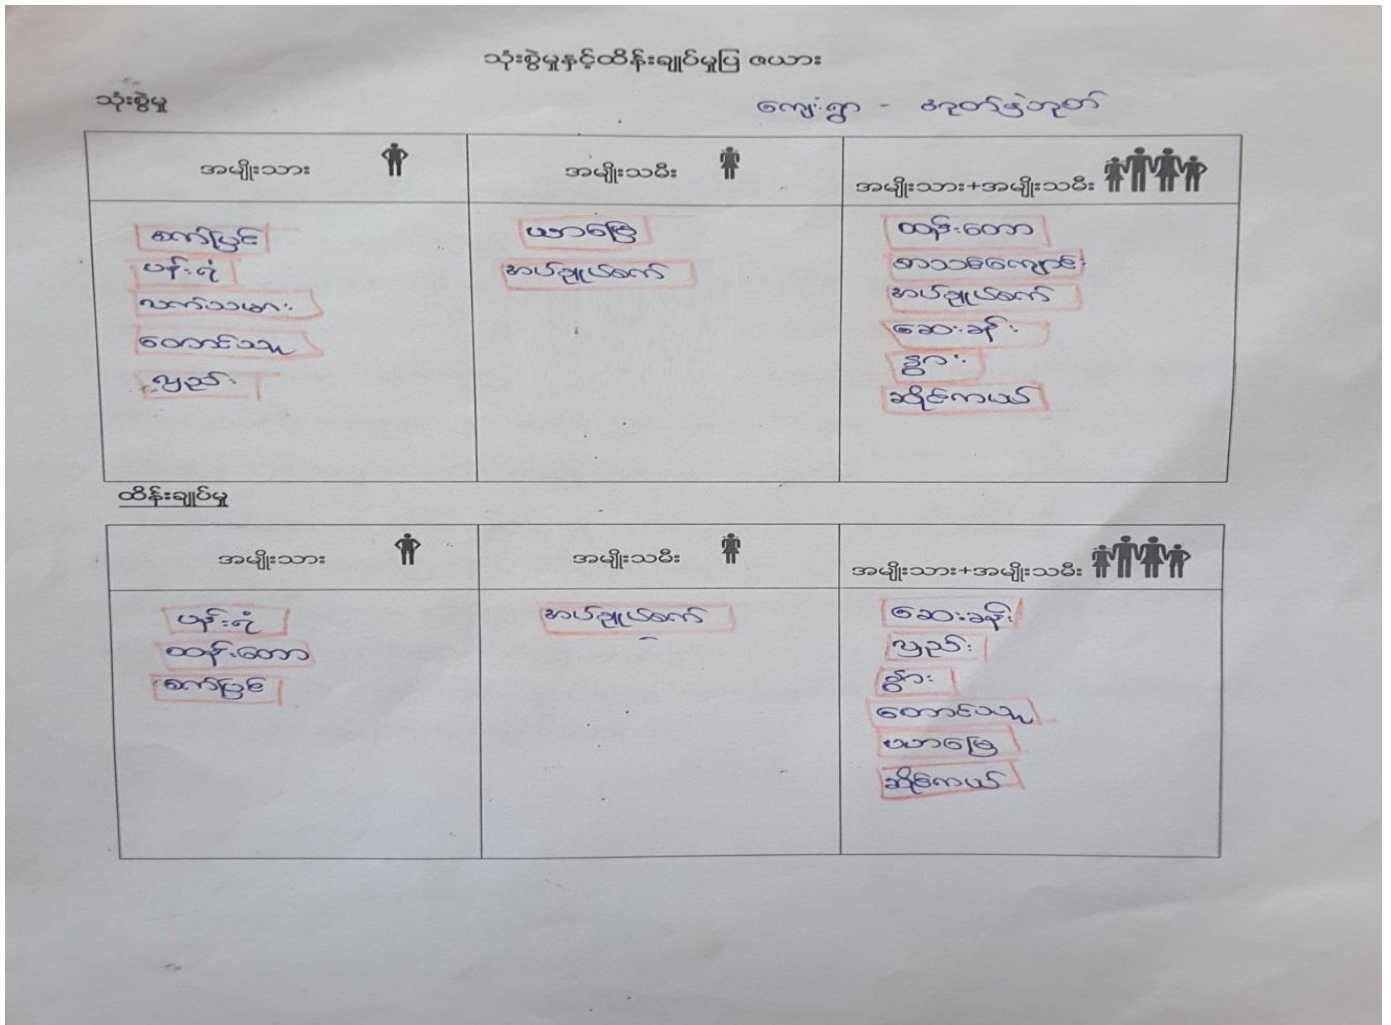 သုံးစွဲမှုနှင့်ထိန်းချုပ်မှုပြ ဇယား
သုံးစွဲမှု
ကျေးရွာ -
အမျိုးသား
အမျိုးသမီး
အမျိုးသား+အမျိုးသမီး
စက်ပြင်
ပန်းရံ
လက်သမား
တောင်သူ
လှည်း
ယာမြေ
အပ်ချုပ်စက်
ထန်းတော
စာသင်ကျောင်း
အပ်ချုပ်စက်
ဆေးခန်း
နွား
ဆိုင်ကယ်
ထိန်းချုပ်မှု
အမျိုးသား
အမျိုးသမီး
အမျိုးသား+အမျိုးသမီး
ပန်းရံ
ထန်းတော
စက်ပြင်
အပ်ချုပ်စက်
ဆေးခန်း
လှည်း
နွား
တောင်သူ
ယာမြေ
ဆိုင်ကယ်